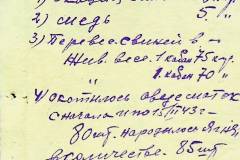 2) медь 5. "
3) Перевес. свиней в —
Жив. весе. 1 кабан 75 кгр.
" 1 кабан 70 "
4) окотилось овцематок
с начала и по 15/III 43 г.
80 шт. народилось ягнят
в количестве 85 шт